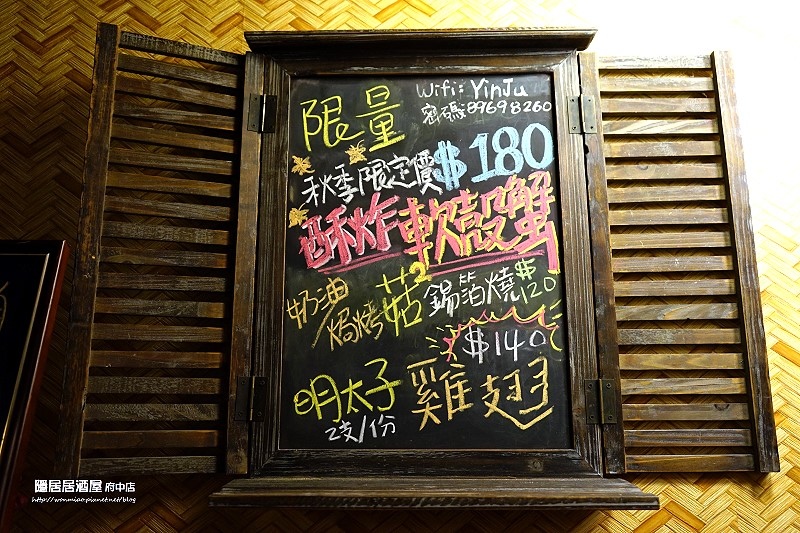 限量
Wifi: YinJu
密碼 89698260
秋季限定價 $180
酥炸軟殼蟹
奶油焗烤菇 錫箔燒 $120
$140
明太子雞翅
2支/份
隱居居酒屋 府中店
http://wommiao.pixnet.net/blog